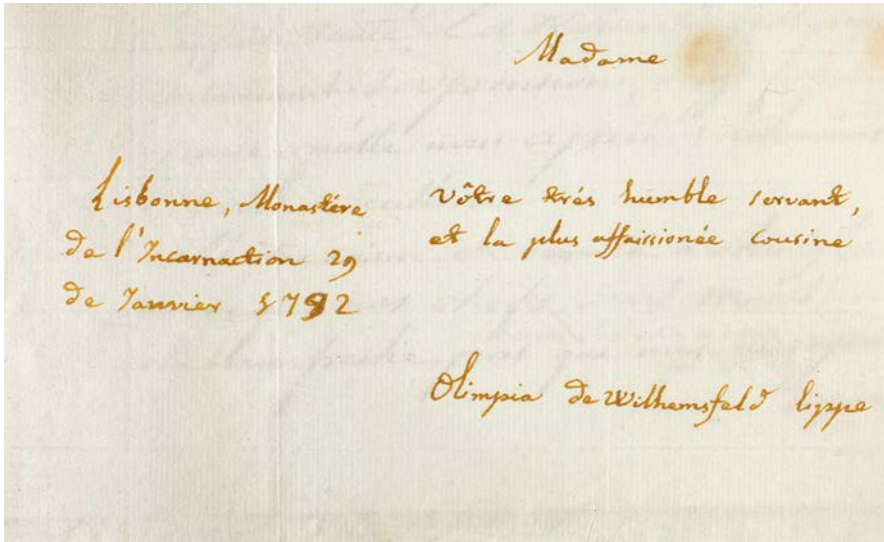 Madame
Lisbonne, Monastére
de l'Incarnaction 29
de Janvier 1792
vôtre trés humble servant,
et la plus affaissionée cousine
Olimpia de Wilhemsfeld lippe